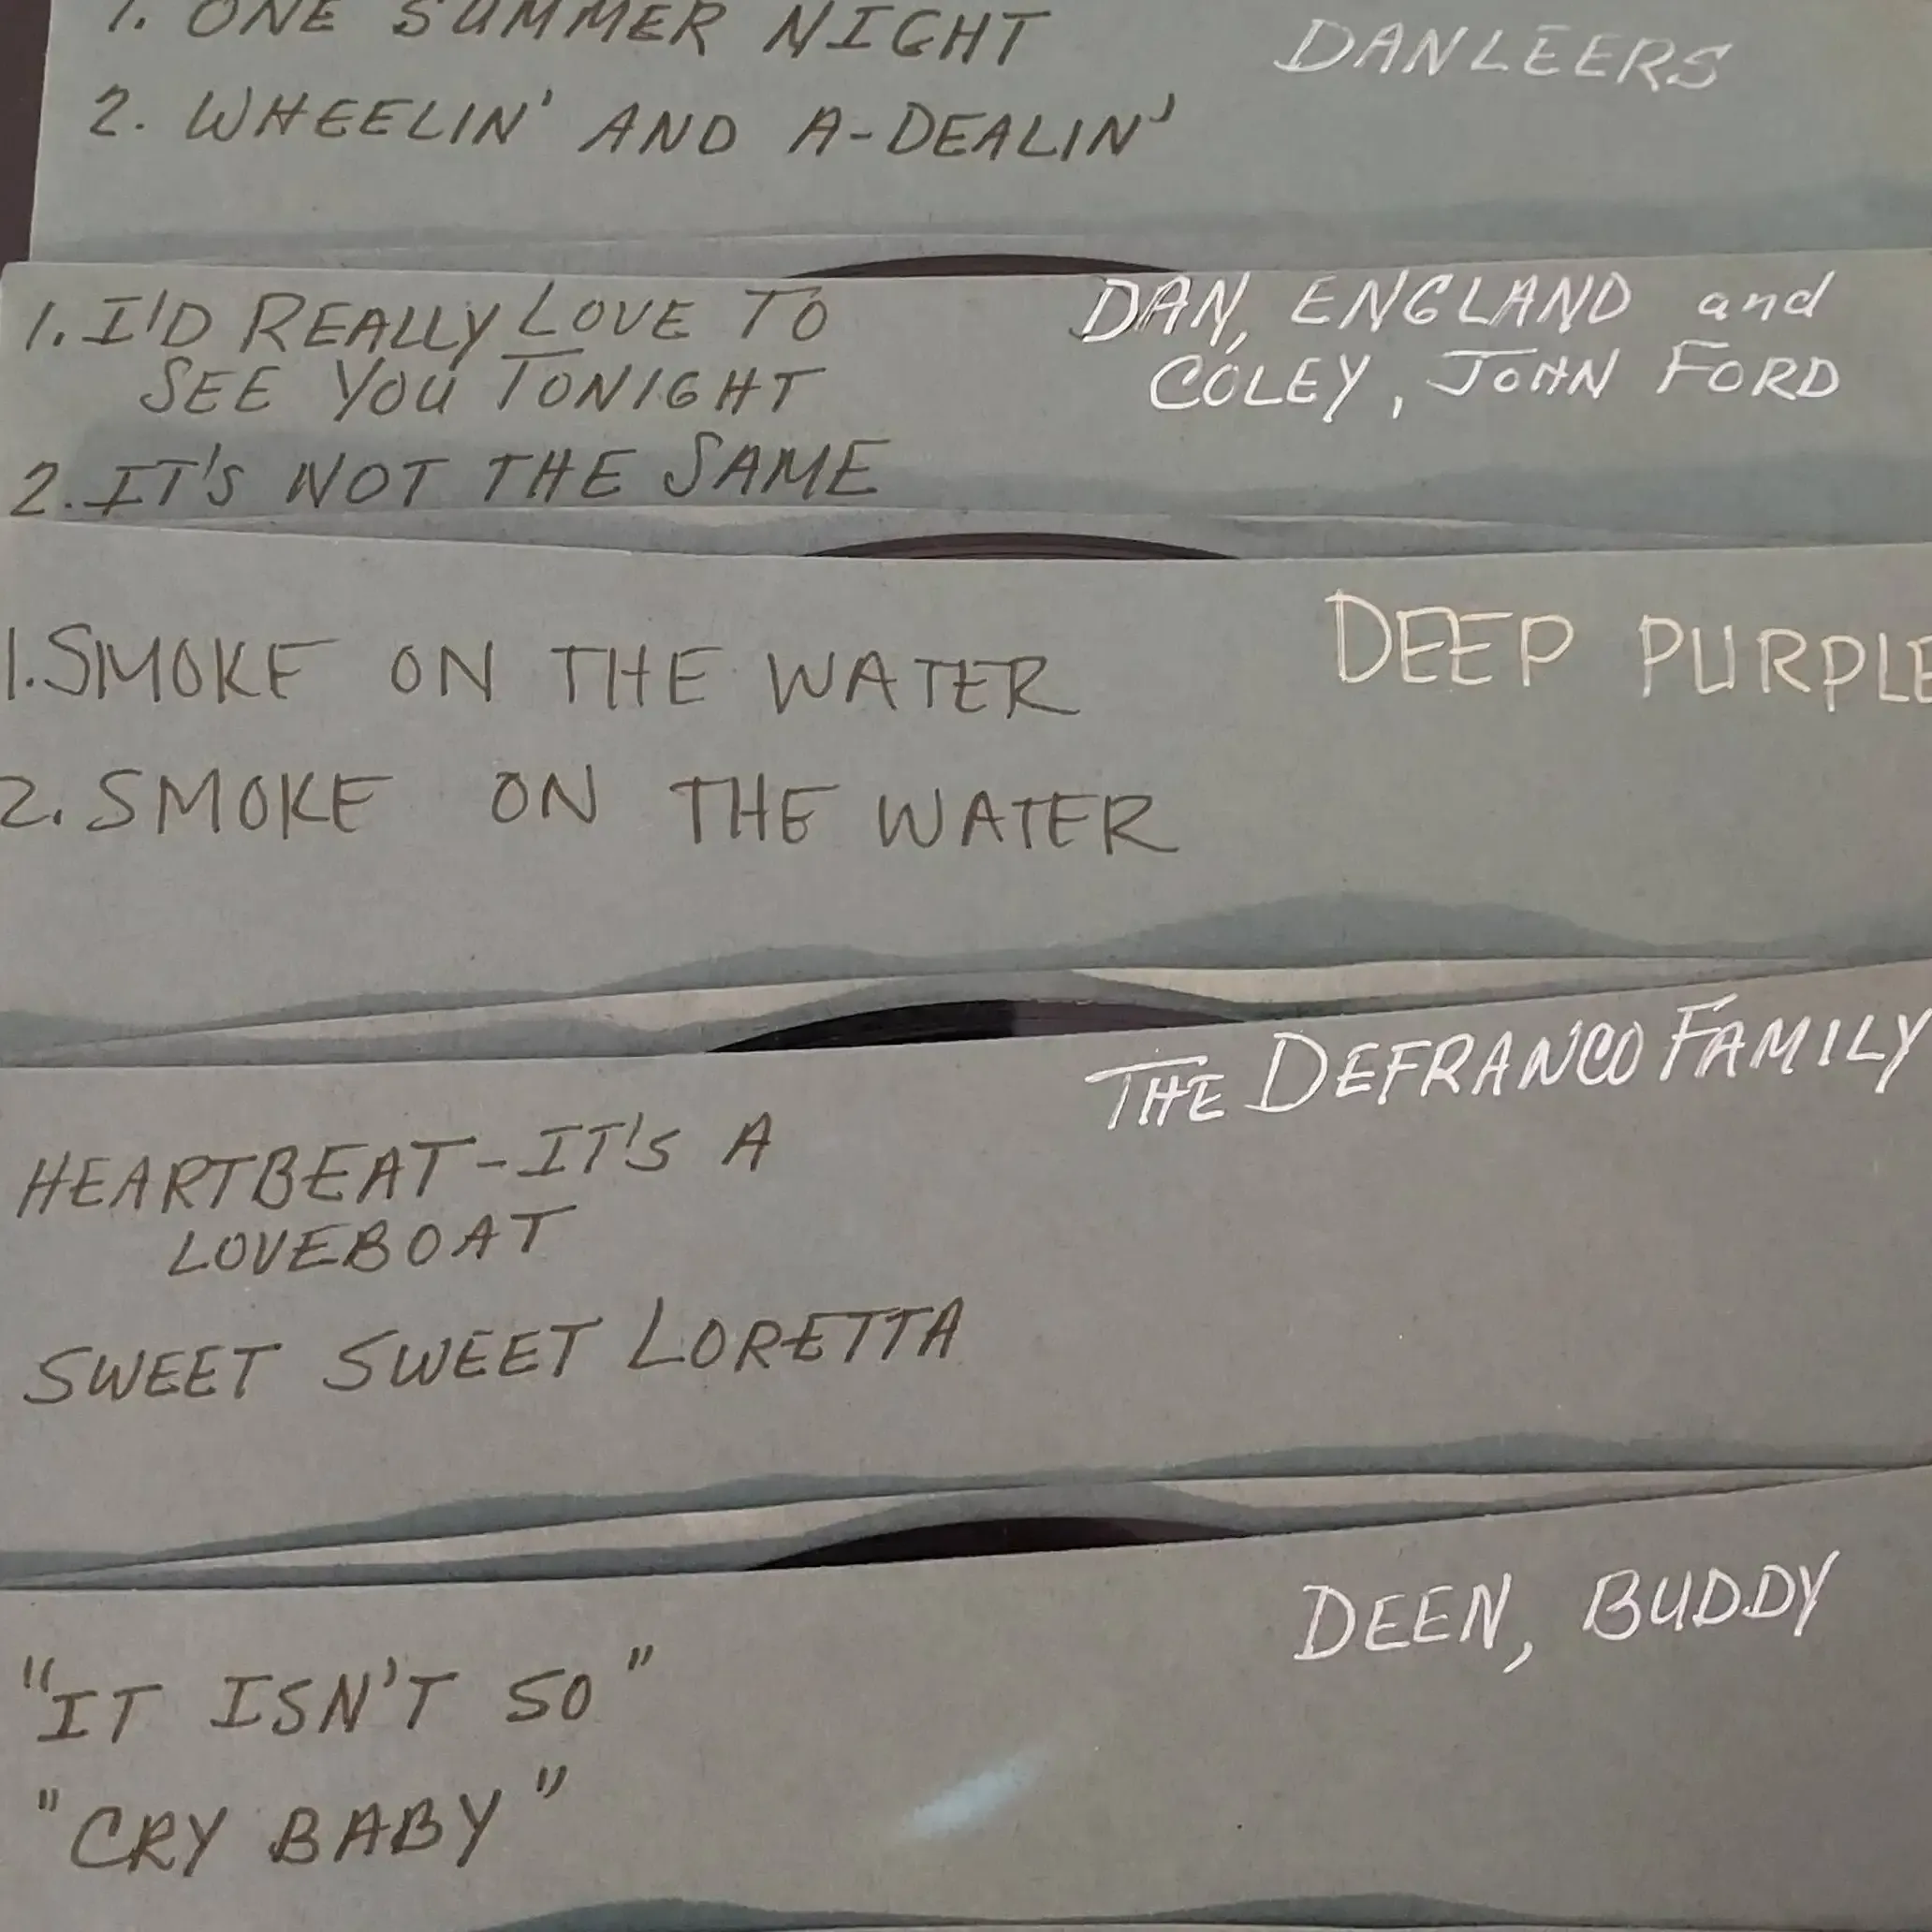 1. ONE SUMMER NIGHT
DANLEERS
2. WHEELIN' AND A-DEALIN'
1. I'D REALLY LOVE TO
SEE YOU TONIGHT
DAN, ENGLAND and
COLEY, JOHN FORD
2. IT'S NOT THE SAME
1. SMOKE ON THE WATER
DEEP PURPLE
2. SMOKE ON THE WATER
THE DEFRANCO FAMILY
HEARTBEAT - IT'S A
LOVEBOAT
SWEET SWEET LORETTA
DEEN, BUDDY
"IT ISN'T SO"
"CRY BABY"